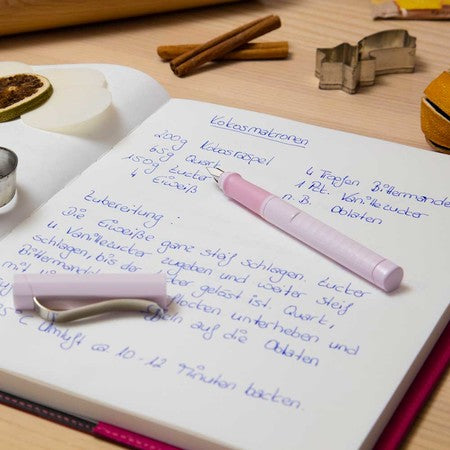 Kokosmakronen
200g Kokosraspel
65g Quark
150g Zucker
4 Eiweiß
4 Tropfen Bittermandel
1 Pck. Vanillezucker
n. B. Oblaten
Zubereitung :
Die Eiweiße ganz steif schlagen. Zucker
u. Vanillezucker zugeben und weiter steif
schlagen, bis der Zucker gelöst ist. Quark,
Bittermandel flocken unterheben und
mit auf die Oblaten
°C Umluft ca 10-12 Minuten backen.